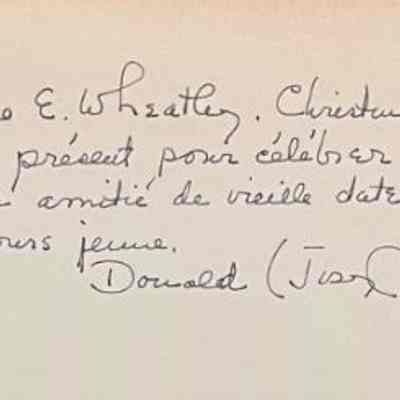 o E. Wheatley. Christm
présent pour célébrer
amitié de vieille date
ours jeune.
Donald